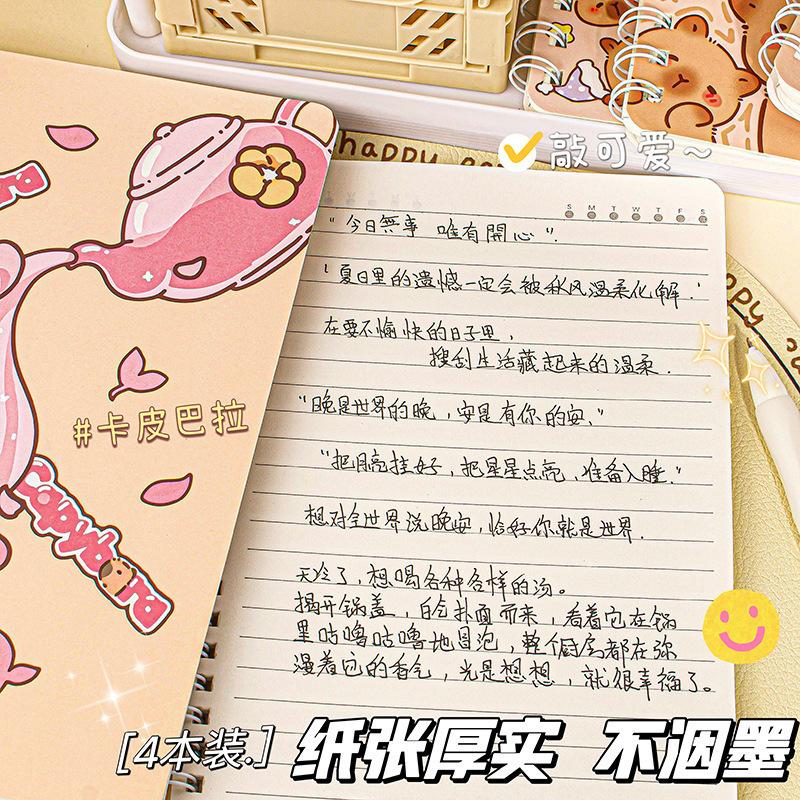 happy
敲可爱~
S M T W T F S
"今日無事 唯有開心".
"夏日里的遗憾一定会被秋风温柔化解."
在要不愉快的日子里,
搜刮生活藏起来的温柔.
#卡皮巴拉
"晚是世界的晚,安是有你的安."
"把月亮挂好,把星星点亮,准备入睡."
想对全世界说晚安,恰好你就是世界.
Capybara
天冷了,想喝各种各样的汤。
揭开锅盖,白气扑面而来,看着它在锅
里咕噜咕噜地冒泡,整个厨房都在弥
漫着它的香气,光是想想,就很幸福了。
[4本装.] 纸张厚实 不洇墨